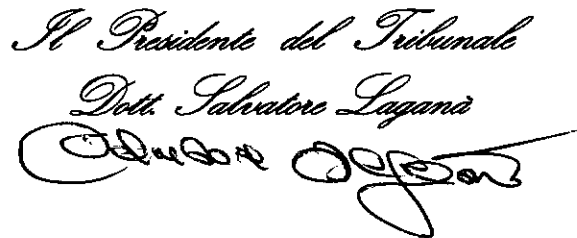 Il Presidente del Tribunale
Dott. Salvatore Laganà